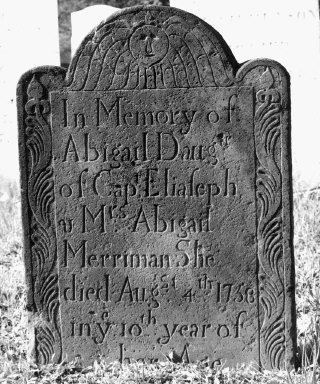 In Memory of
Abigail Daugᵗʳ
of Capᵗ Eliaseph
& Mʳˢ Abigail
Merriman She
died Augˢᵗ 4ᵗʰ 1758
in yᵉ 10ᵗʰ year of
her Age